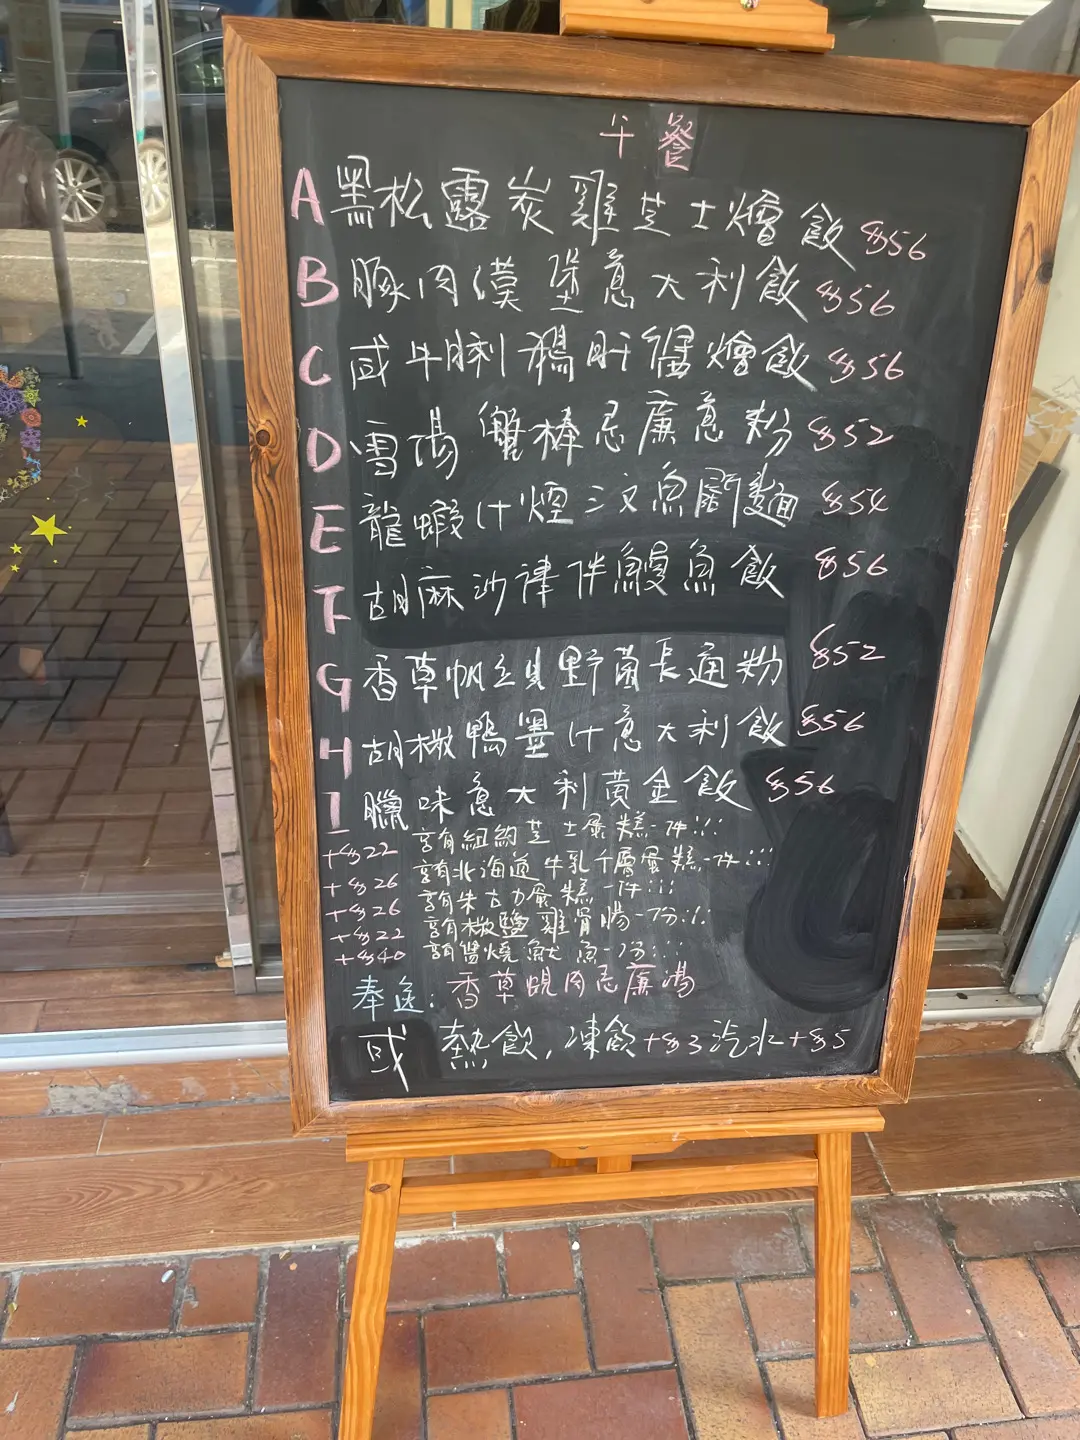 午餐
A 黑松露炭雞芝士燴飯 $56
B 豚肉漢堡意大利飯 $56
C 咸牛脷鵝肝 燴飯 $56
D 雪湯蟹棒忌廉意粉 $52
E 龍蝦汁煙三文魚闊麵 $54
F 胡麻沙律伴鰻魚飯 $56
G 香草帆立貝野菌長通粉 $52
H 胡椒鴨墨汁意大利飯 $56
I 臘味意大利黃金飯 $56
+$22 享有紐約芝士蛋糕一件!!!
+$26 享有北海道牛乳千層蛋糕一件!!!
+$26 享有朱古力蛋糕一件!!!
+$22 享有椒鹽雞骨腸一份!!!
+$40 享有醬燒魷魚一份!!!
奉送:香草蜆肉忌廉湯
或 熱飲,凍飲+$3汽水+$5